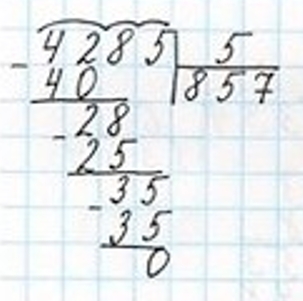 4285 5
- 40 857
- 28
25
- 35
35
0